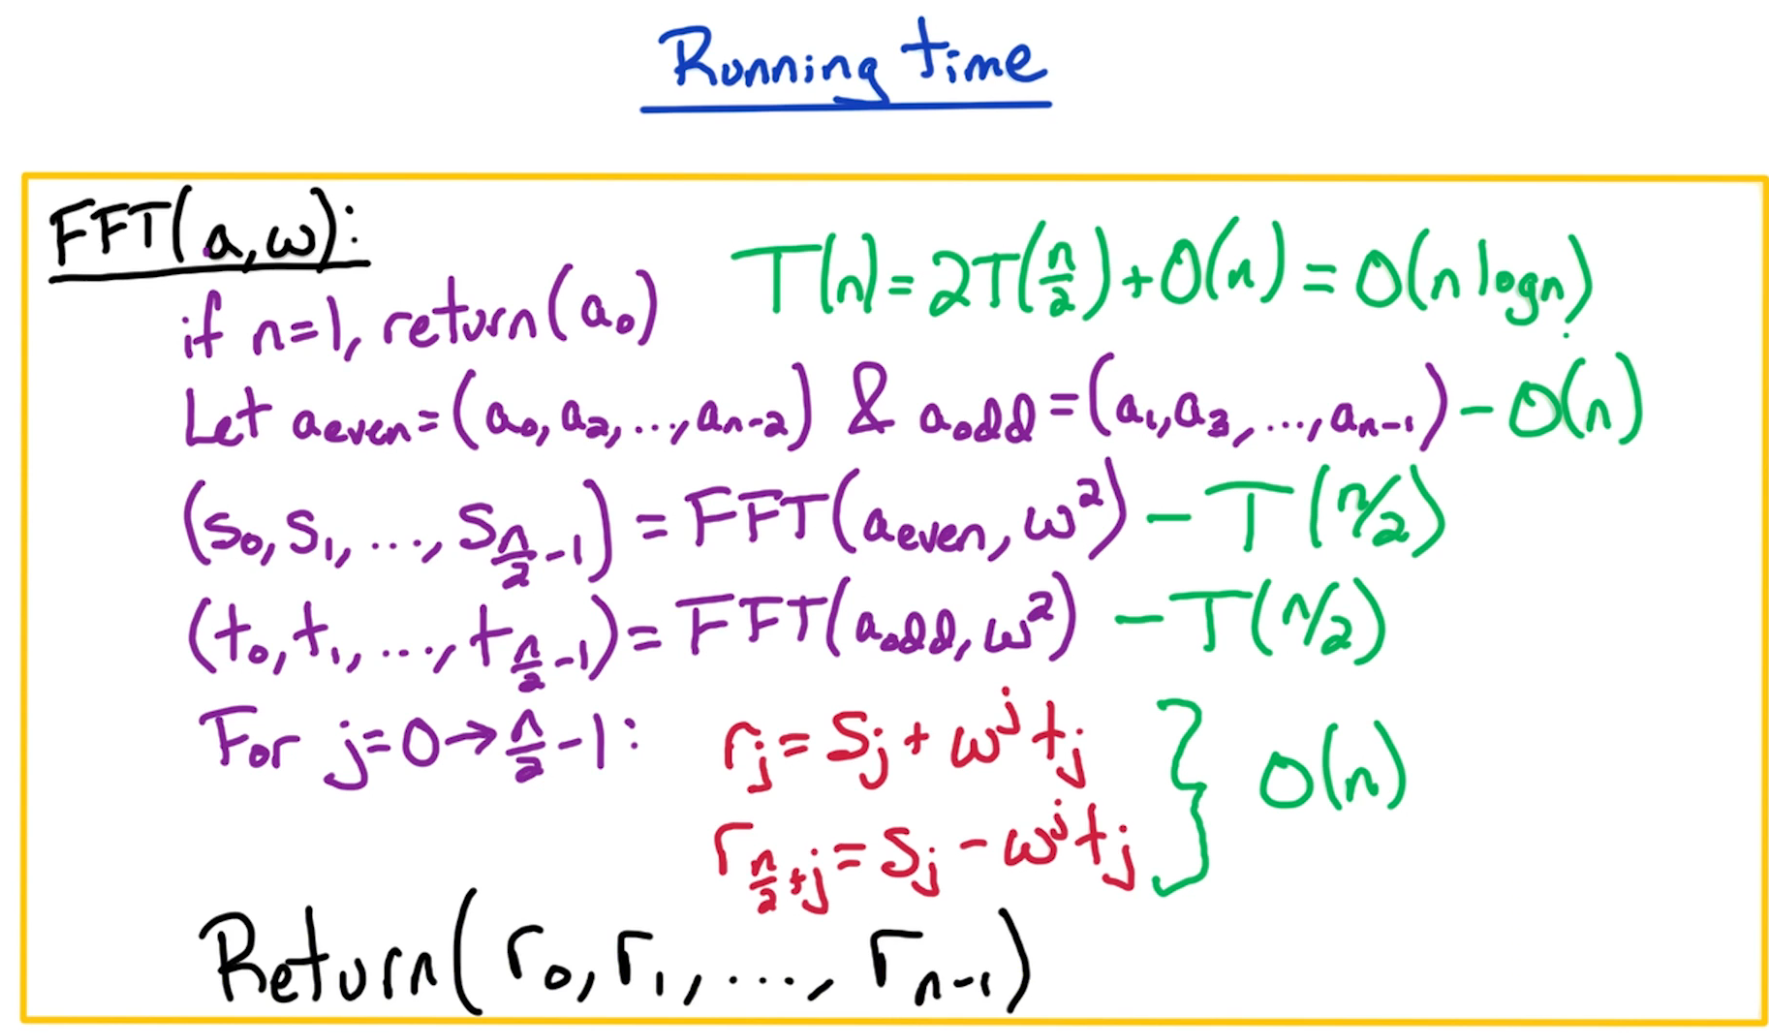 Running time
FFT(a, ω):
T(n) = 2T(n/2) + O(n) = O(n log n)
if n=1, return(a₀)
Let a_even = (a₀, a₂, ..., a_{n-2}) & a_odd = (a₁, a₃, ..., a_{n-1}) - O(n)
(s₀, s₁, ..., s_{n/2-1}) = FFT(a_even, ω²) - T(n/2)
(t₀, t₁, ..., t_{n/2-1}) = FFT(a_odd, ω²) - T(n/2)
For j=0→n/2-1: r_j = s_j + ω^j t_j
r_{n/2+j} = s_j - ω^j t_j } O(n)
Return(r₀, r₁, ..., r_{n-1})